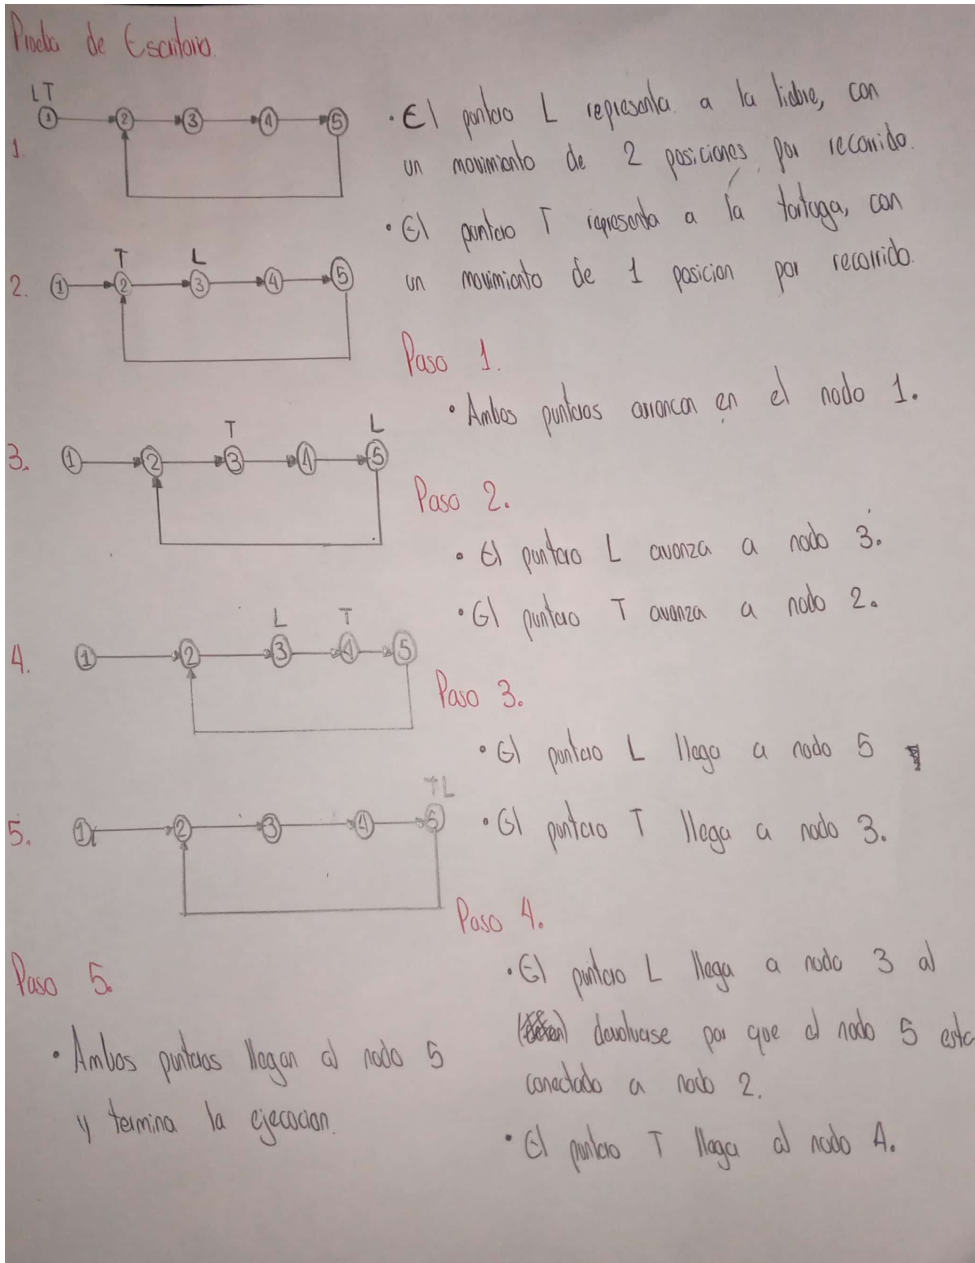 Prueba de Escritorio.
LT
1. 1 2 3 4 5
T L
2. 1 2 3 4 5
T L
3. 1 2 3 4 5
L T
4. 1 2 3 4 5
TL
5. 1 2 3 4 5
• El puntero L representa a la liebre, con
un movimiento de 2 posiciones por recorrido.
• El puntero T representa a la tortuga, con
un movimiento de 1 posicion por recorrido.
Paso 1.
• Ambos punteros arrancan en el nodo 1.
Paso 2.
• El puntero L avanza a nodo 3.
• El puntero T avanza a nodo 2.
Paso 3.
• El puntero L llega a nodo 5
• El puntero T llega a nodo 3.
Paso 4.
• El puntero L llega a nodo 3 al
devolverse por que el nodo 5 esta
conectado a nodo 2.
• El puntero T llega al nodo 4.
Paso 5.
• Ambos punteros llegan al nodo 5
y termina la ejecucion.